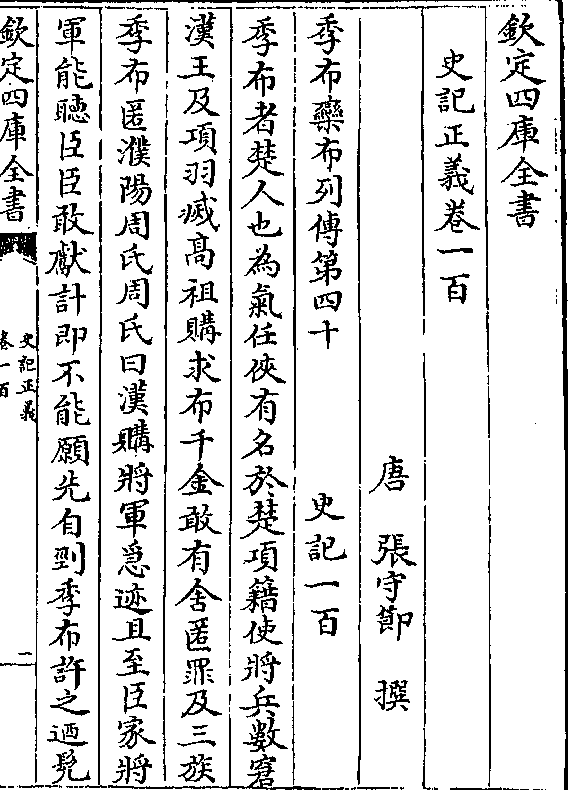 欽定四庫全書
史記正義卷一百
唐 張守節 撰
季布欒布列傳第四十 史記一百
季布者楚人也為氣任俠有名於楚項籍使將兵數窘
漢王及項羽滅髙祖購求布千金敢有舍匿罪及三族
季布匿濮陽周氏周氏曰漢購將軍急迹且至臣家將
軍能聽臣臣敢獻計即不能願先自剄季布許之迺髠
欽定四庫全書
史記正義
卷一百
二